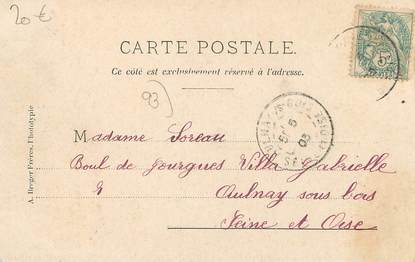 20 €
CARTE POSTALE.
Ce côté est exclusivement réservé à l'adresse.
93
A. Breger Frères, Phototypie
Madame Soreau
Boul de Gourgues Villa Gabrielle
Aulnay sous bois
Seine et Oise